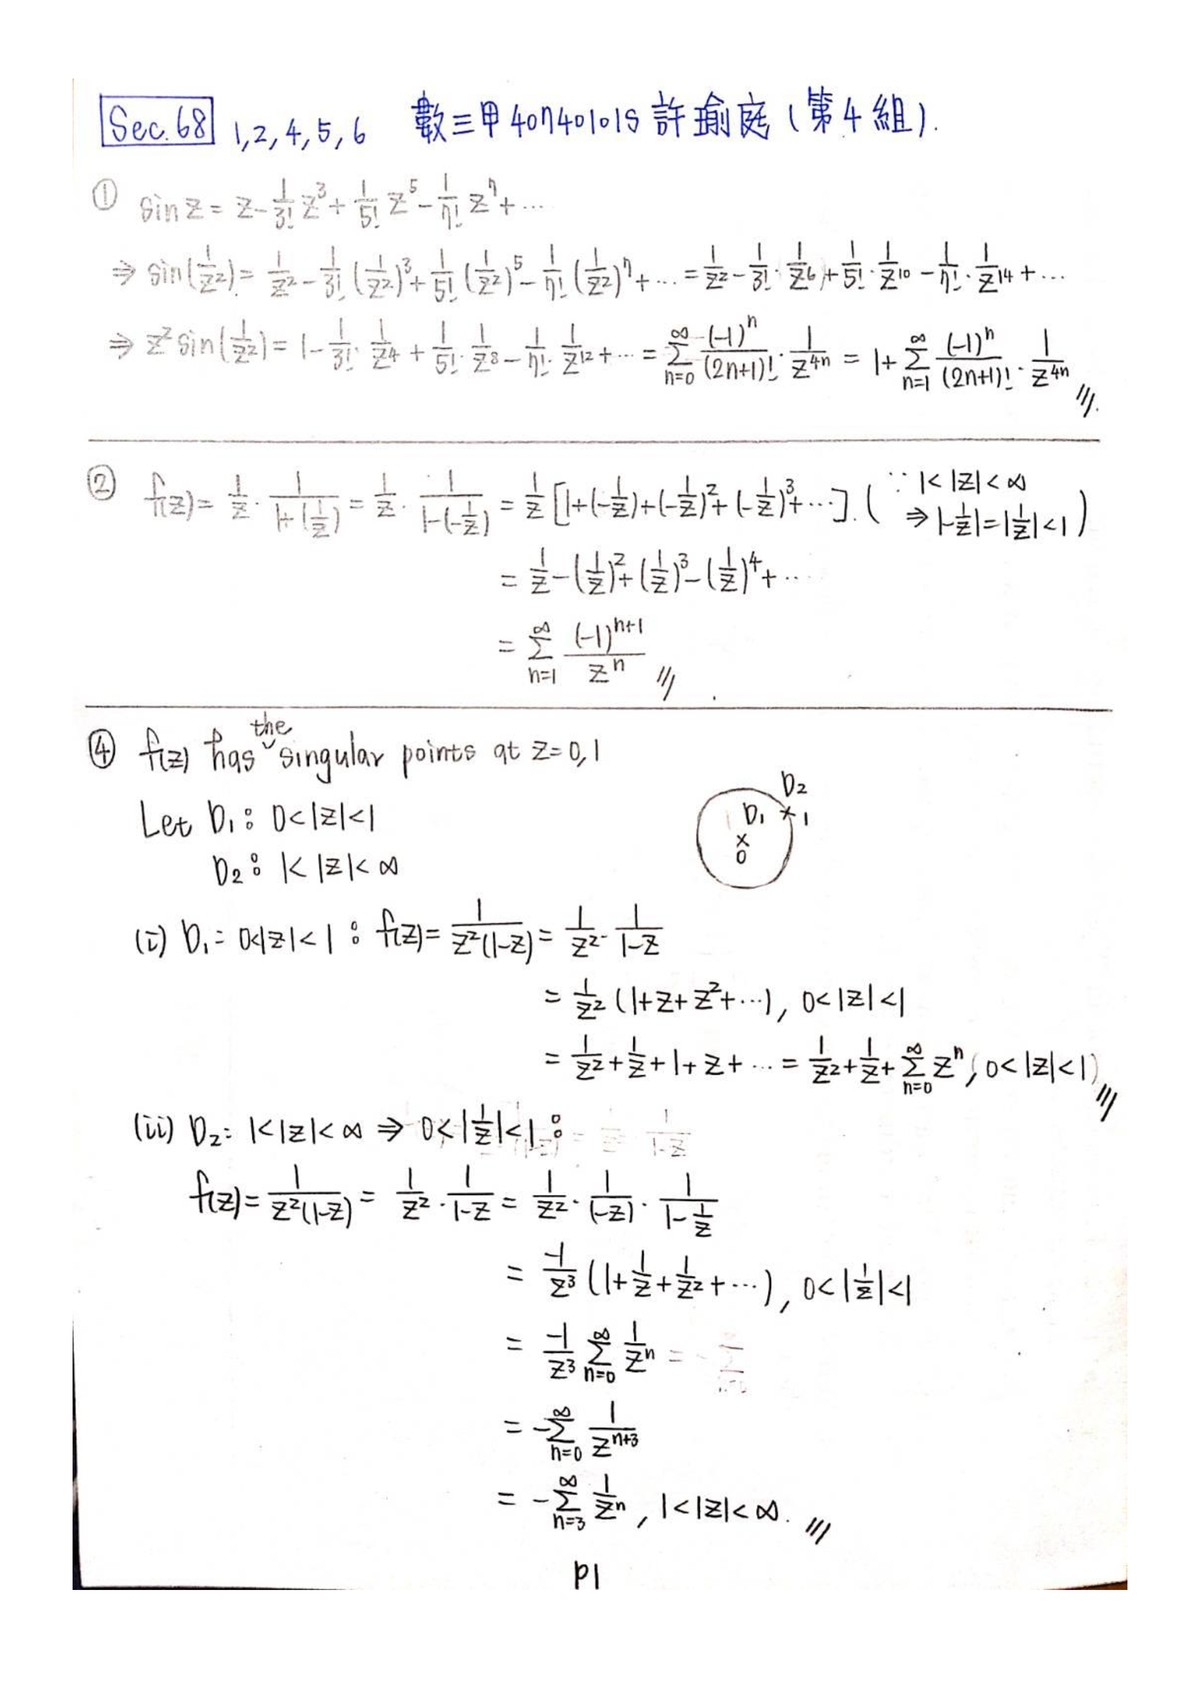 Sec.68 1,2,4,5,6 數三甲 407401015 許瑜庭 (第4組).
① sin z = z - 1/3! z³ + 1/5! z⁵ - 1/7! z⁷ + ...
⇒ sin(1/z²) = 1/z² - 1/3! (1/z²)³ + 1/5! (1/z²)⁵ - 1/7! (1/z²)⁷ + ... = 1/z² - 1/3! · 1/z⁶ + 1/5! · 1/z¹⁰ - 1/7! · 1/z¹⁴ + ...
⇒ z² sin(1/z²) = 1 - 1/3! · 1/z⁴ + 1/5! · 1/z⁸ - 1/7! · 1/z¹² + ... = ∑_{n=0}^{∞} (-1)ⁿ/(2n+1)! · 1/z⁴ⁿ = 1 + ∑_{n=1}^{∞} (-1)ⁿ/(2n+1)! · 1/z⁴ⁿ
② f(z) = 1/z · 1/(1+(1/z)) = 1/z · 1/(1-(-1/z)) = 1/z [1+(-1/z)+(-1/z)²+(-1/z)³+...]. (∵ 1<|z|<∞ ⇒ |-1/z|=|1/z|<1)
= 1/z - (1/z)² + (1/z)³ - (1/z)⁴ + ...
= ∑_{n=1}^{∞} (-1)ⁿ⁺¹/zⁿ
④ f(z) has the singular points at z=0,1
Let D₁: 0<|z|<1
D₂: 1<|z|<∞
D₂
D₁ × 1
×
0
(i) D₁ = 0<|z|<1 : f(z) = 1/(z²(1-z)) = 1/z² · 1/(1-z)
= 1/z² (1+z+z²+...), 0<|z|<1
= 1/z² + 1/z + 1 + z + ... = 1/z² + 1/z + ∑_{n=0}^{∞} zⁿ, (0<|z|<1)
(ii) D₂ = 1<|z|<∞ ⇒ 0<|1/z|<1 :
f(z) = 1/(z²(1-z)) = 1/z² · 1/(1-z) = 1/z² · 1/(-z) · 1/(1-1/z)
= -1/z³ (1+1/z+1/z²+...), 0<|1/z|<1
= -1/z³ ∑_{n=0}^{∞} 1/zⁿ
= -∑_{n=0}^{∞} 1/zⁿ⁺³
= -∑_{n=3}^{∞} 1/zⁿ, 1<|z|<∞.
P1